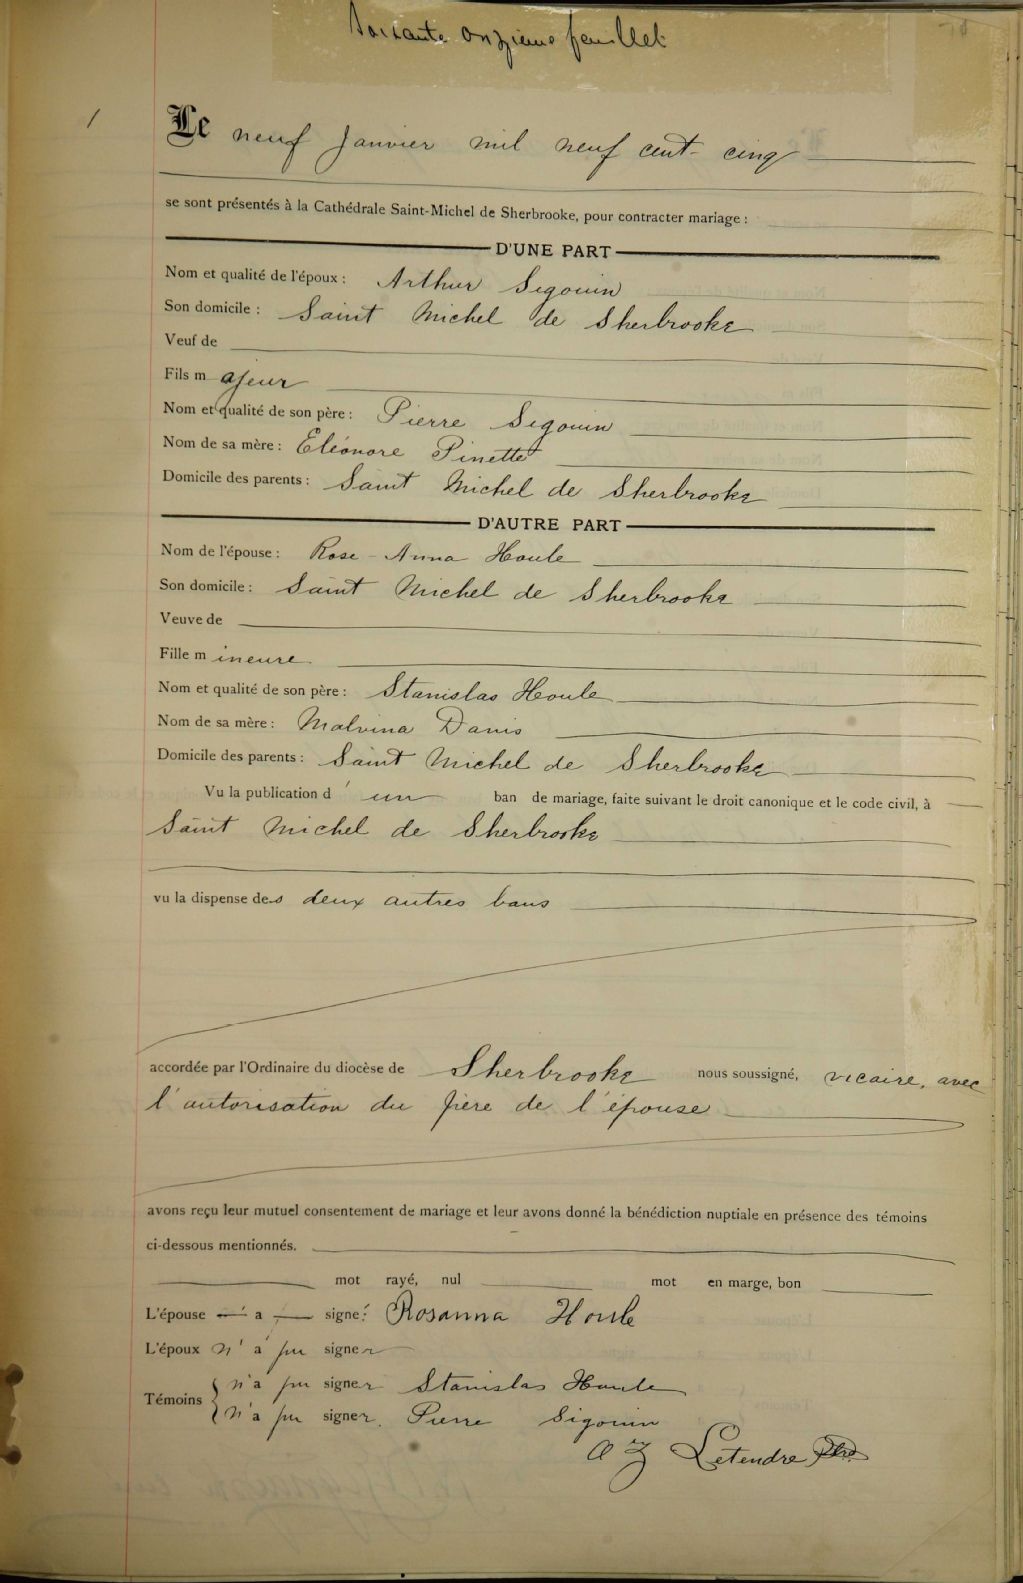 Soixante onzième feuillet
1
Le neuf Janvier mil neuf cent cinq
se sont présentés à la Cathédrale Saint-Michel de Sherbrooke, pour contracter mariage :
D'UNE PART
Nom et qualité de l'époux : Arthur Segouin
Son domicile : Saint Michel de Sherbrooke
Veuf de
Fils majeur
Nom et qualité de son père : Pierre Segouin
Nom de sa mère : Eléonore Pinette
Domicile des parents : Saint Michel de Sherbrooke
D'AUTRE PART
Nom de l'épouse : Rose-Anna Houle
Son domicile : Saint Michel de Sherbrooke
Veuve de
Fille mineure
Nom et qualité de son père : Stanislas Houle
Nom de sa mère : Malvina Danis
Domicile des parents : Saint Michel de Sherbrooke
Vu la publication d'un ban de mariage, faite suivant le droit canonique et le code civil, à
Saint Michel de Sherbrooke
vu la dispense des deux autres bans
accordée par l'Ordinaire du diocèse de Sherbrooke nous soussigné, vicaire, avec
l'autorisation du père de l'épouse
avons reçu leur mutuel consentement de mariage et leur avons donné la bénédiction nuptiale en présence des témoins
ci-dessous mentionnés.
mot rayé, nul mot en marge, bon
L'épouse a signé: Rosanna Houle
L'époux n'a pu signer
Témoins { n'a pu signer Stanislas Houle
n'a pu signer. Pierre Sigouin
A Z Letendre Ptre